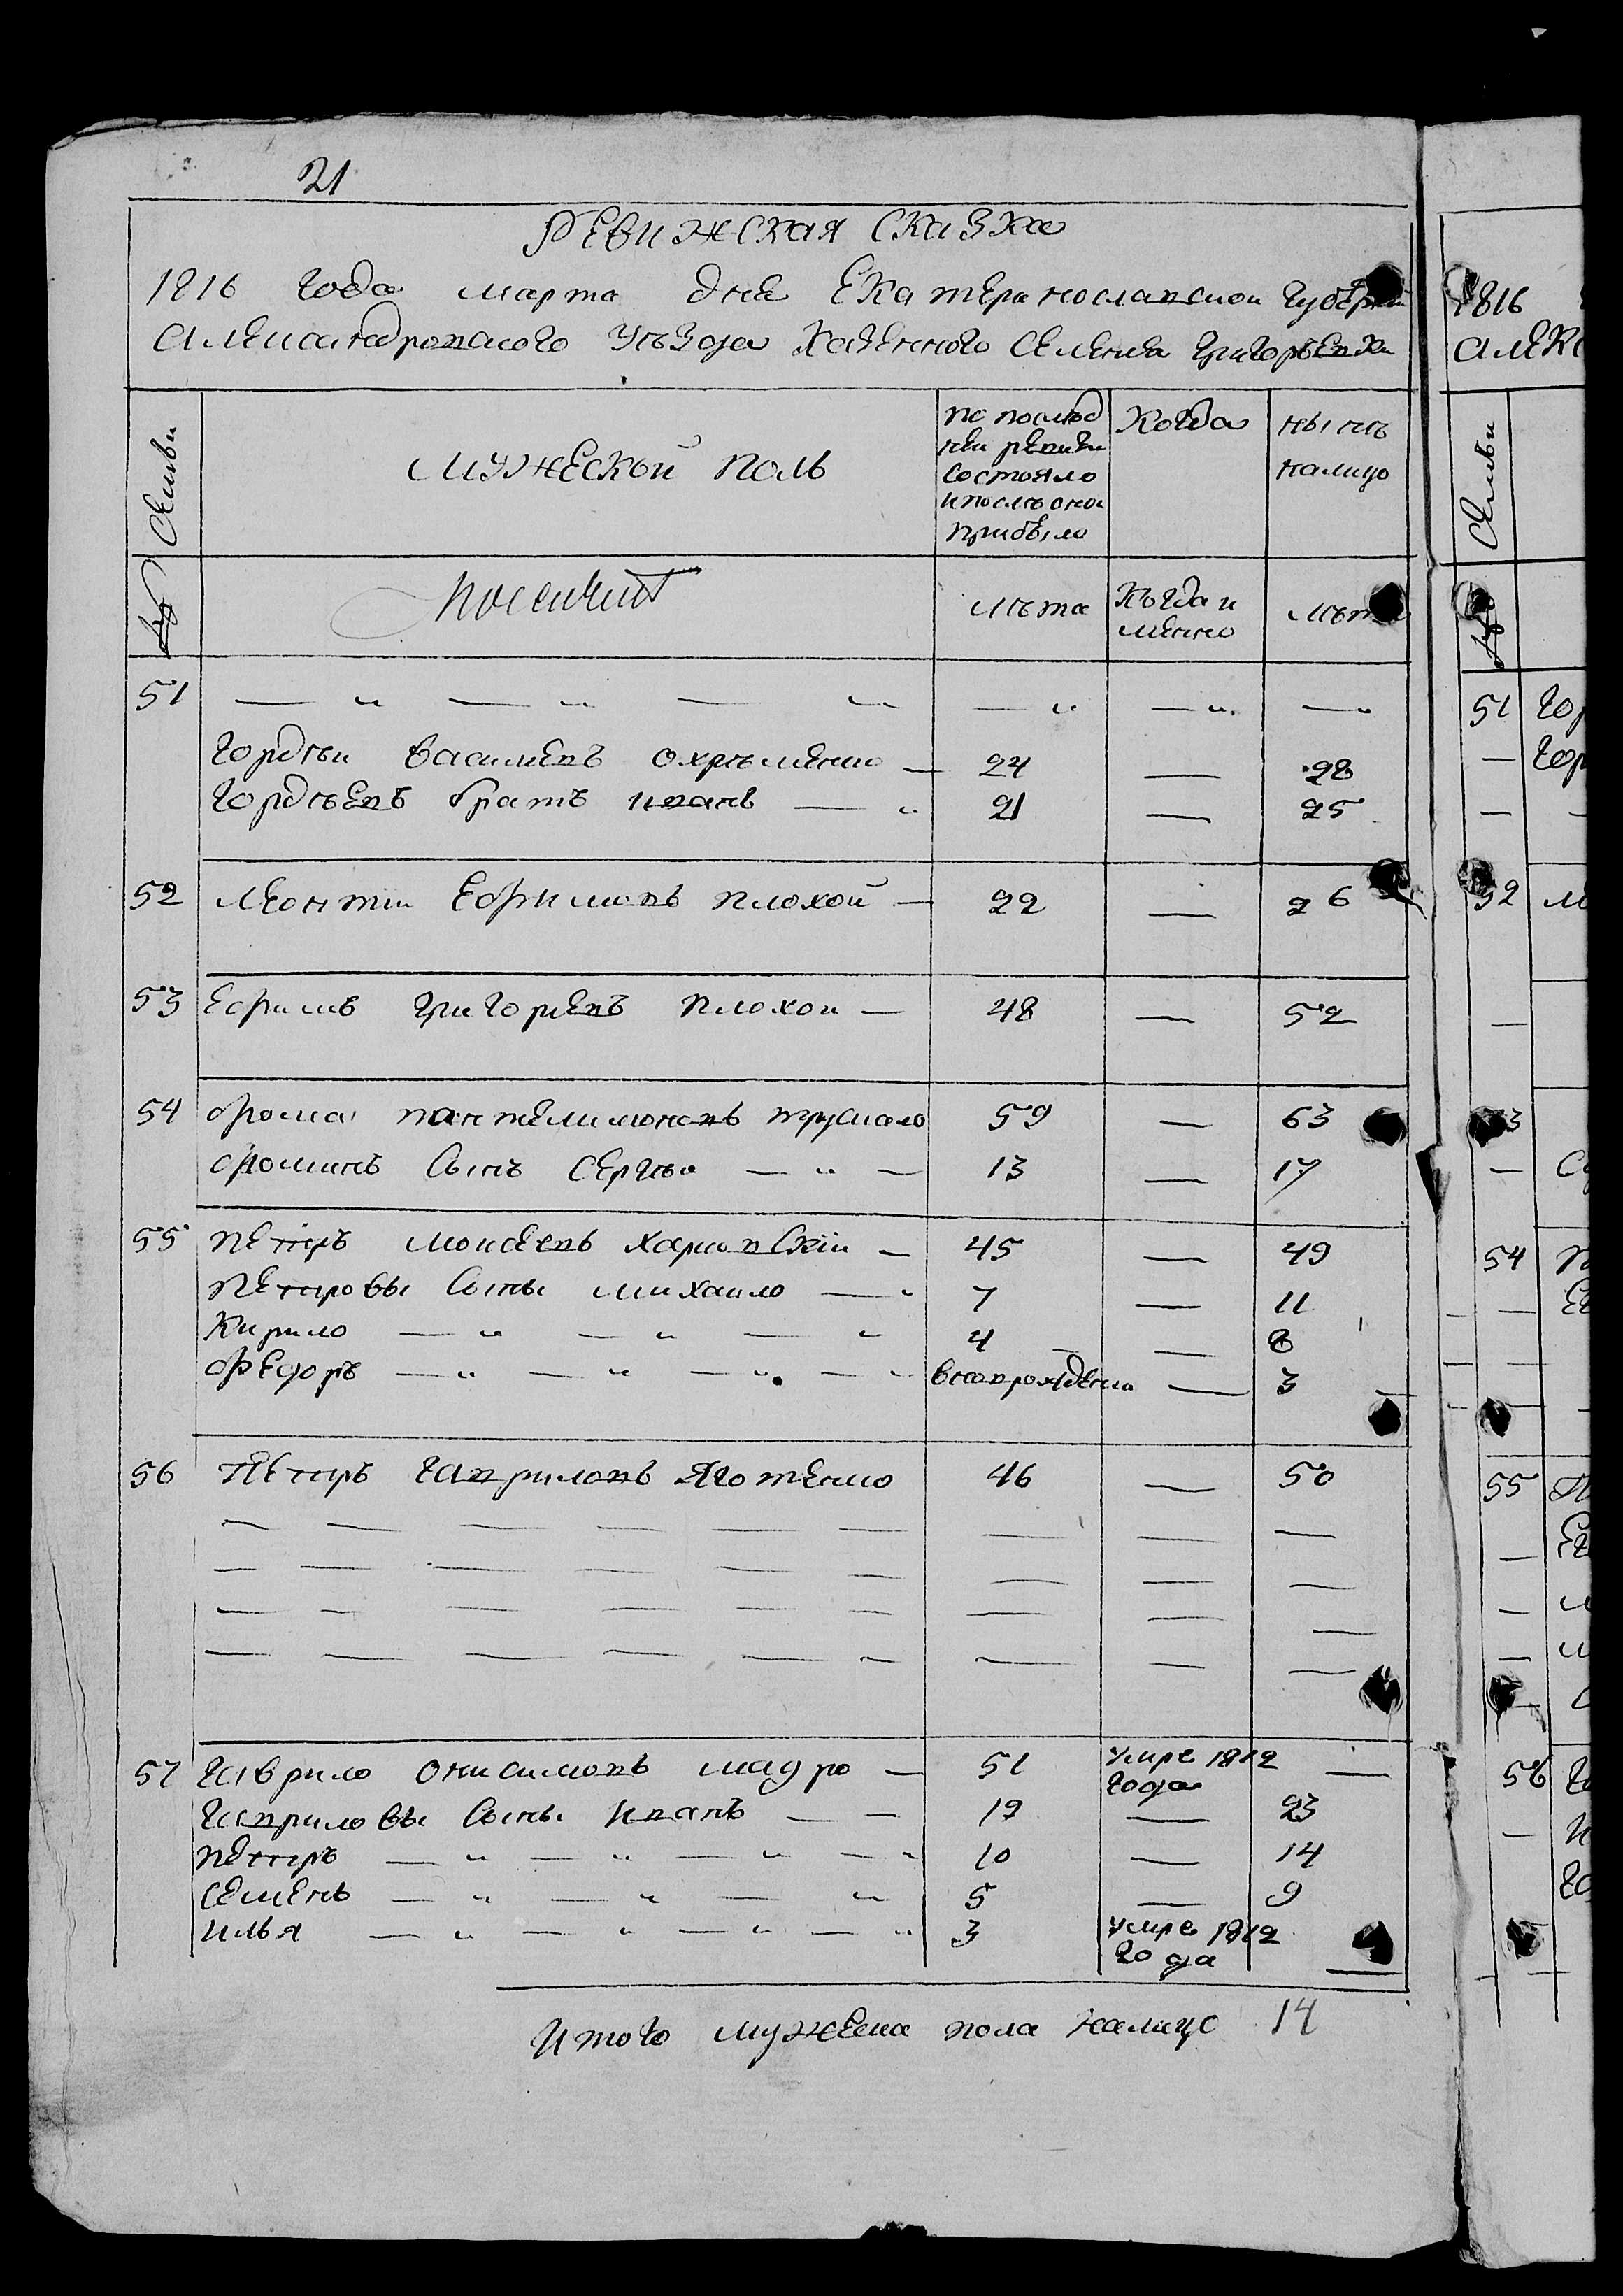 21
РЕВИЖСКАЯ СКАЗКА
1816 года марта дня Екатеринославской Губернии
Александровского Уѣзда Казенного Селения Григорьевки
Семьи
МУЖЕСКЫЙ ПОЛЪ
по послѣд
ней ревизи
состояло
и послѣ оной
прибыло
Когда
нынѣ
налицо
№
лѣта
Когда и
менно
лѣта
51 — „ — „ — „ — „ — „ — „
Гордѣи Василиевъ Охрѣменко — 24 — 28
Гордѣевъ братъ Иванъ — „ 21 — 25
52 Леонтии Ефимовъ Плохой — 22 — 26
53 Ефимъ Григориевъ Плохои — 48 — 52
54 Фома Пантелимоновъ 59 — 63
Фоминъ Сынъ Сергѣи — „ — 13 — 17
55 Петръ Моисеевъ — 45 — 49
Петровы Сыны Михаило — „ 7 — 11
Кирило — „ — „ — „ 4 — 8
Федоръ — „ — „ — „ — „ вноврожденни — 3
56 Петръ Гавриловъ Яготенко 46 — 50
57 Гаврило Онисимовъ Мадро — 51 умре 1812 —
года
Гавриловы Сыны Иванъ — — 19 — 23
Петръ — „ — „ — „ — „ 10 — 14
Семенъ — „ — „ — „ 5 — 9
Илья — „ — „ — „ — „ 3 умре 1812
года
Итого мужеска пола налицо 14
1816
Алекс
Семьи
№
51 Гор
— Гор
52
54 П
55 П
56 Г